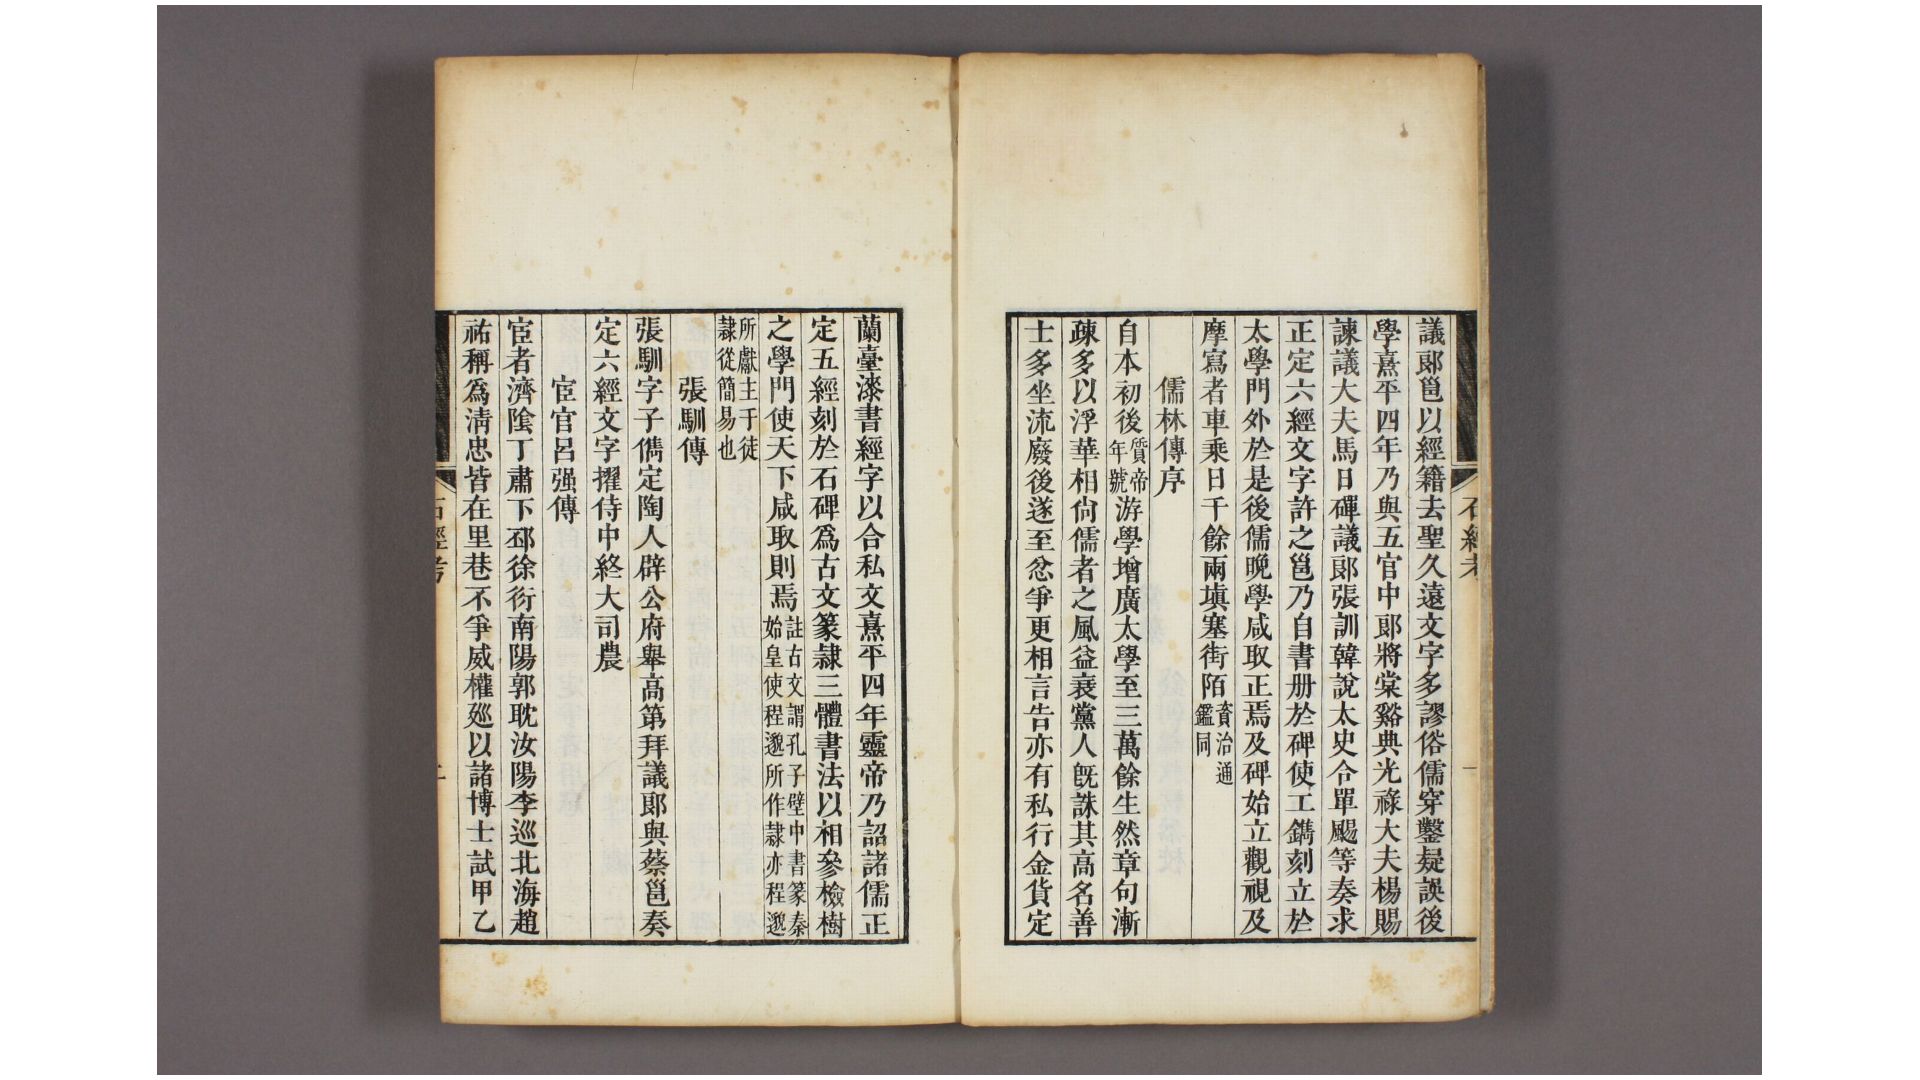 議郎邕以經籍去聖久遠文字多謬俗儒穿鑿疑誤後
學熹平四年乃與五官中郎將棠谿典光祿大夫楊賜
諫議大夫馬日磾議郎張訓韓說太史令單颺等奏求
正定六經文字許之邕乃自書册於碑使工鐫刻立於
太學門外於是後儒晚學咸取正焉及碑始立觀視及
摩寫者車乘日千餘兩塡塞街陌資治通鑑同
儒林傳序
自本初後質帝年號游學增廣太學至三萬餘生然章句漸
疎多以浮華相尙儒者之風益衰黨人旣誅其高名善
士多坐流廢後遂至忿爭更相言告亦有私行金貨定
石經考
一
蘭臺漆書經字以合私文熹平四年靈帝乃詔諸儒正
定五經刻於石碑爲古文篆隷三體書法以相參檢樹
之學門使天下咸取則焉註古文謂孔子壁中書篆秦始皇使程邈所作隷亦程邈
所獻主于徒隷從簡易也
張馴傳
張馴字子儁定陶人辟公府舉高第拜議郎與蔡邕奏
定六經文字擢侍中終大司農
宦官呂强傳
宦者濟陰丁肅下邳徐衍南陽郭耽汝陽李巡北海趙
祐稱爲淸忠皆在里巷不爭威權廵以諸博士試甲乙
石經考
二